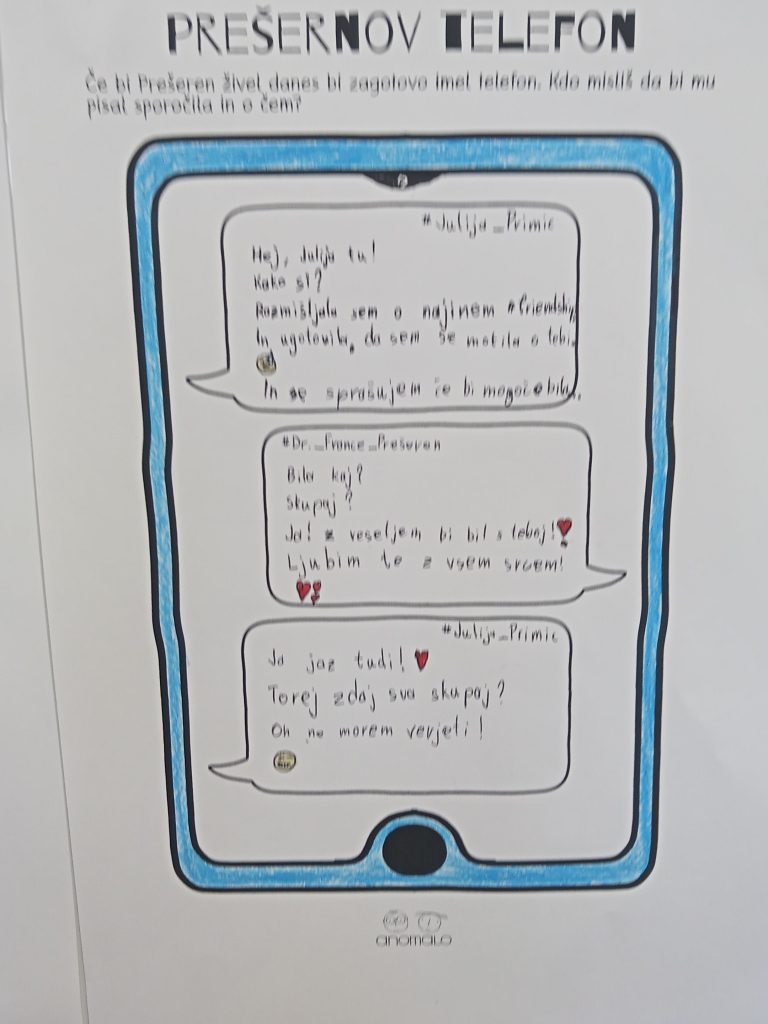 PREŠERNOV TELEFON
Če bi Prešeren živel danes bi zagotovo imel telefon. Kdo misliš da bi mu
pisal sporočila in o čem?
#Julija_Primic
Hej, Julija tu!
Kako si?
Razmišljala sem o najinem #friendship
In ugotovila, da sem se motila o tebi.
In se sprašujem če bi mogoče bila..
#Dr._France_Prešeren
Bila kaj?
Skupaj?
Ja! z veseljem bi bil s teboj!
Ljubim te z vsem srcem!
#Julija_Primic
Ja jaz tudi!
Torej zdaj sva skupaj?
Oh ne morem verjeti!
anomalo